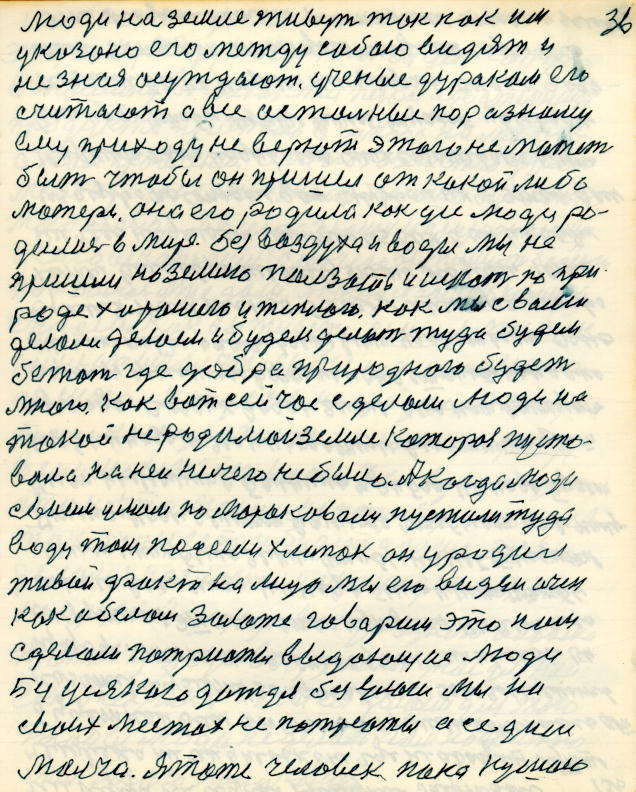 36
люди на земле живут так как им
указано его между собою видят и
не зная осуждают. ученые дураком его
считают а все остольные поразному
ему приходу не верют этого не может
быт чтобы он пришел от какой либо
матери. она его родила как и все люди ро-
дились в мире. Без воздуха и воды мы не
пришли на землю ползать и искать по при-
роде хорошего и теплого. как мы с вами
делали делаем и будем делат туда будем
бежат где добра природного будет
много. как вот сейчас сделали люди на
такой неродимой земле которая пусто-
вала на ней ничего не было. А когда люди
своим умом помороковали пустили туда
воду там посеели хлопок он уродил
живой факт на лицо мы его видем
как о белом золоте говарим это нам
сделали патриоты выдающие люди
Без всякого дождя без влаги мы на
своих местах не патриоты а сидим
молча. Я тоже человек пока